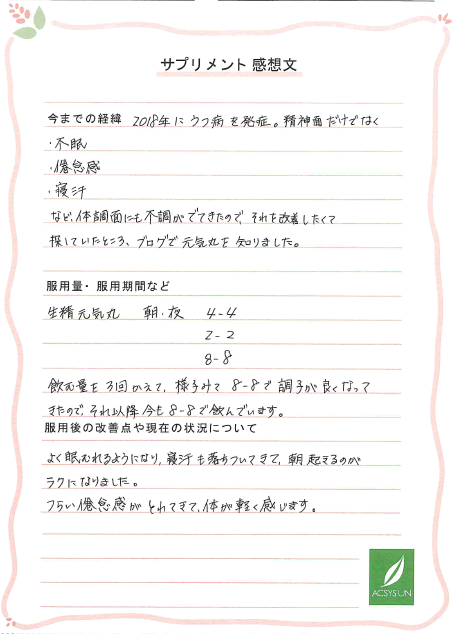 サプリメント 感想文
今までの経緯 2018年に うつ病 を発症。精神面だけでなく
・不眠
・倦怠感
・寝汗
など、体調面にも不調がでてきたので、それを改善したくて
探していたところ、ブログで 元気丸を 知りました。
服用量・服用期間など
生精元気丸 朝・夜 4-4
2-2
8-8
飲む量を 3回かえて、様子みて 8-8で 調子が良くなって
きたので、それ以降 今も 8-8で飲んでいます。
服用後の改善点や現在の状況について
よく眠れるようになり、寝汗も落ちついてきて、朝起きるのが
ラクになりました。
つらい倦怠感が とれてきて、体が軽く感じます。
ACSYSUN